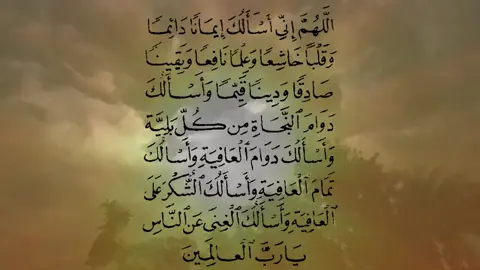 اَللَّهُمَّ إِنِّي أَسْأَلُكَ إِيمَانًا دَائِمًا
وَقَلْبًا خَاشِعًا وَعِلْمًا نَافِعًا وَيَقِينًا
صَادِقًا وَدِينًا قَيِّمًا وَأَسْأَلُكَ
دَوَامَ ٱلنَّجَاةِ مِن كُلِّ بَلِيَّةٍ
وَأَسْأَلُكَ دَوَامَ ٱلْعَافِيَةِ وَأَسْأَلُكَ
تَمَامَ ٱلْعَافِيَةِ وَأَسْأَلُكَ ٱلشُّكْرَ عَلَى
ٱلْعَافِيَةِ وَأَسْأَلُكَ ٱلْغِنَى عَنِ ٱلنَّاسِ
يَا رَبَّ ٱلْعَالَمِينَ